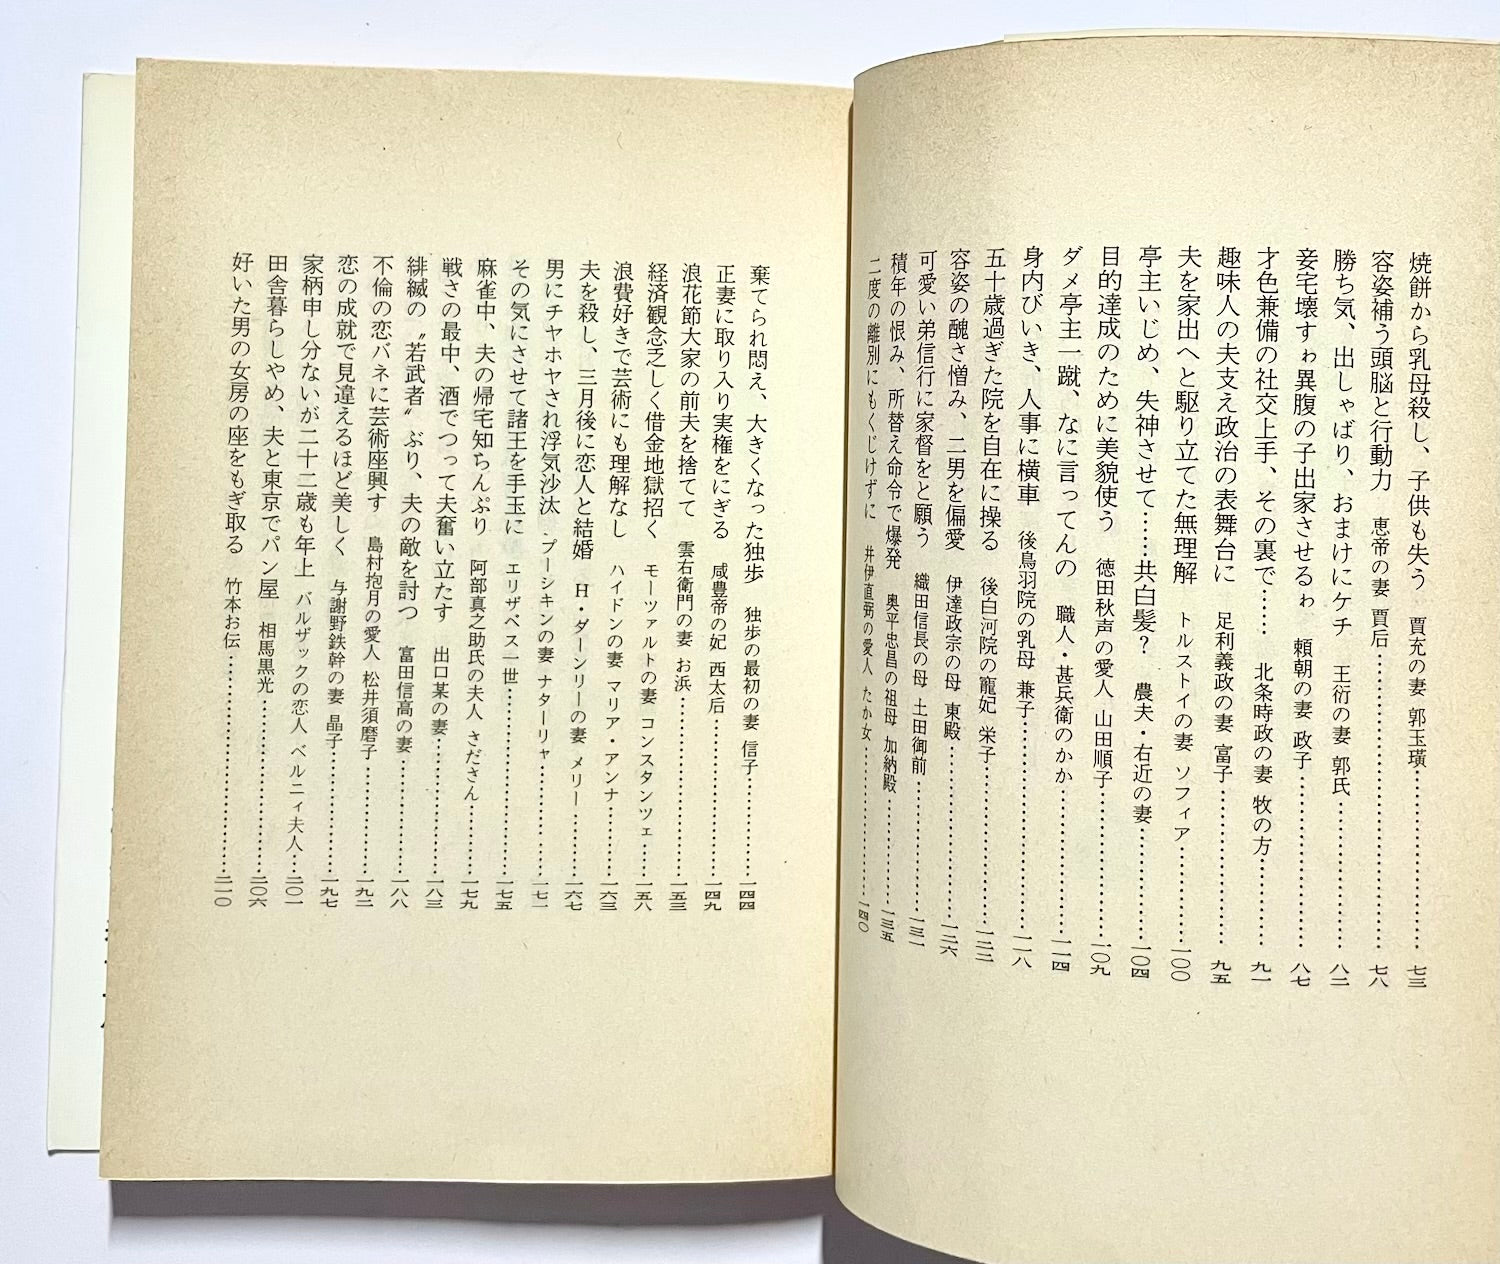 焼餅から乳母殺し、子供も失う　賈充の妻 郭玉璜……………………七三
容姿補う頭脳と行動力　恵帝の妻 賈后……………………七八
勝ち気、出しゃばり、おまけにケチ　王衍の妻 郭氏……………………八二
妾宅壊すゎ異腹の子出家させるゎ　頼朝の妻 政子……………………八七
才色兼備の社交上手、その裏で……　北条時政の妻 牧の方……………………九一
趣味人の夫支え政治の表舞台に　足利義政の妻 富子……………………九五
夫を家出へと駆り立てた無理解　トルストイの妻 ソフィア……………………一〇〇
亭主いじめ、失神させて……共白髪？　農夫・右近の妻……………………一〇四
目的達成のために美貌使う　徳田秋声の愛人 山田順子……………………一〇九
ダメ亭主一蹴、なに言ってんの　職人・甚兵衛のかか……………………一一四
身内びいき、人事に横車　後鳥羽院の乳母 兼子……………………一一八
五十歳過ぎた院を自在に操る　後白河院の寵妃 栄子……………………一二二
容姿の醜さ憎み、二男を偏愛　伊達政宗の母 東殿……………………一二六
可愛い弟信行に家督をと願う　織田信長の母 土田御前……………………一三一
積年の恨み、所替え命令で爆発　奥平忠昌の祖母 加納殿……………………一三五
二度の離別にもくじけずに　井伊直弼の愛人 たか女……………………一四〇
棄てられ悶え、大きくなった独歩　独歩の最初の妻 信子……………………一四四
正妻に取り入り実権をにぎる　咸豊帝の妃 西太后……………………一四九
浪花節大家の前夫を捨てて　雲右衛門の妻 お浜……………………一五三
経済観念乏しく借金地獄招く　モーツァルトの妻 コンスタンツェ……一五八
浪費好きで芸術にも理解なし　ハイドンの妻 マリア・アンナ……………………一六三
夫を殺し、三月後に恋人と結婚　H・ダーンリーの妻 メリー……………………一六七
男にチヤホヤされ浮気沙汰　プーシキンの妻 ナターリャ……………………一七一
その気にさせて諸王を手玉に　エリザベス一世……………………一七五
麻雀中、夫の帰宅知らんぷり　阿部真之助氏の夫人 さださん……………………一七九
戦さの最中、酒でつって夫奮い立たす　出口某の妻……………………一八三
緋縅の〝若武者〟ぶり、夫の敵を討つ　富田信高の妻……………………一八八
不倫の恋バネに芸術座興す　島村抱月の愛人 松井須磨子……………………一九二
恋の成就で見違えるほど美しく　与謝野鉄幹の妻 晶子……………………一九七
家柄申し分ないが二十二歳も年上　バルザックの恋人 ベルニィ夫人……二〇一
田舎暮らしやめ、夫と東京でパン屋　相馬黒光……………………二〇六
好いた男の女房の座をもぎ取る　竹本お伝……………………二一〇